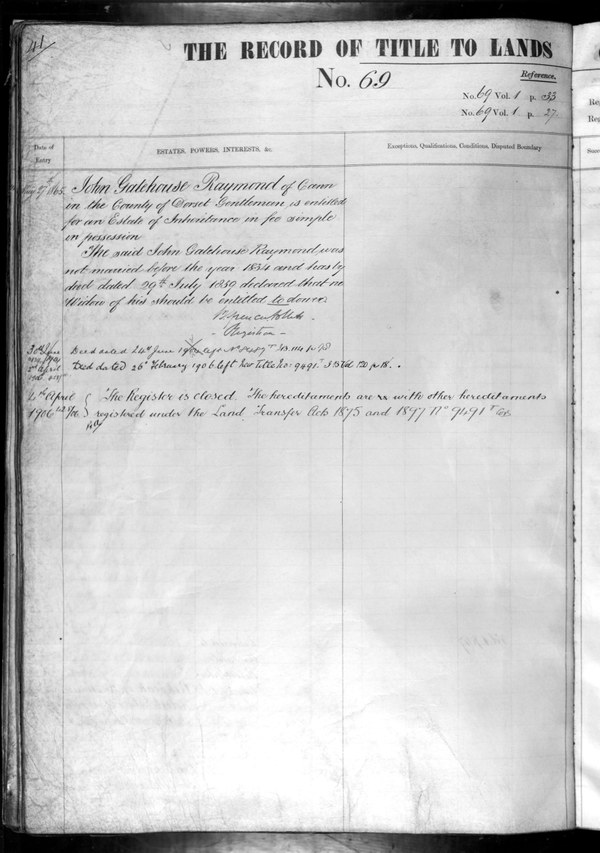 41
THE RECORD OF TITLE TO LANDS
No. 69
Reference.
No. 69 Vol. 1 p. 33
No. 69 Vol. 1 p. 27
Date of
Entry
ESTATES, POWERS, INTERESTS, &c.
Exceptions, Qualifications, Conditions, Disputed Boundary
John Gatehouse Raymond of Cann
in the County of Dorset Gentleman, is entitled
for an Estate of Inheritance in fee simple
in possession
The said John Gatehouse Raymond was
not married before the year 1834 and has by
deed dated 29th July 1859 declared that no
Widow of his should be entitled to dower.
Registrar
Deed dated 24th June
Deed dated 26th February 1906 left see Title No: 9491
4th April { The Register is closed. The hereditaments are with other hereditaments
1906 registered under the Land Transfer Acts 1875 and 1897 No 9491